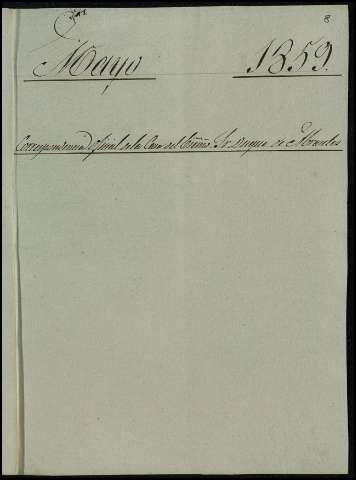 8
Mayo 1859.
Correspondencia Oficial de la Casa del Exmo. Sr. Duque de Abrantes